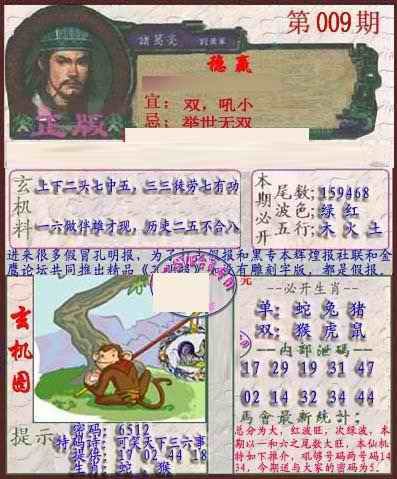 第009期
諸葛亮
稳赢
宜：双，吼小
忌：举世无双
正版
玄机料
上下二头七中五，三三徒劳七有功
一六做伴雄才现，历史二五不合八
本期必开
尾数：159468
波色：绿 红
五行：木 火 土
进来很多假冒孔明报，为了
假报和黑专本辉煌报社联和金
鹰论坛共同推出精品
没有雕刻字版，都是假报。
玄机图
--必开生肖--
单：蛇 兔 猪
双：猴 虎 鼠
--内部泄码--
17 29 19 31 47
02 14 32 34 44
馬會最新統計：
总分为大，红波旺，次绿波，本
期以一和六之尾数大旺，本仙机
特如下推介，吼够号码两号码14
34，今期送与大家的密码为5.
提示
密码：6512
特码诗：可笑天下三六事
提倍：17 02 44 18
生肖：蛇、猴